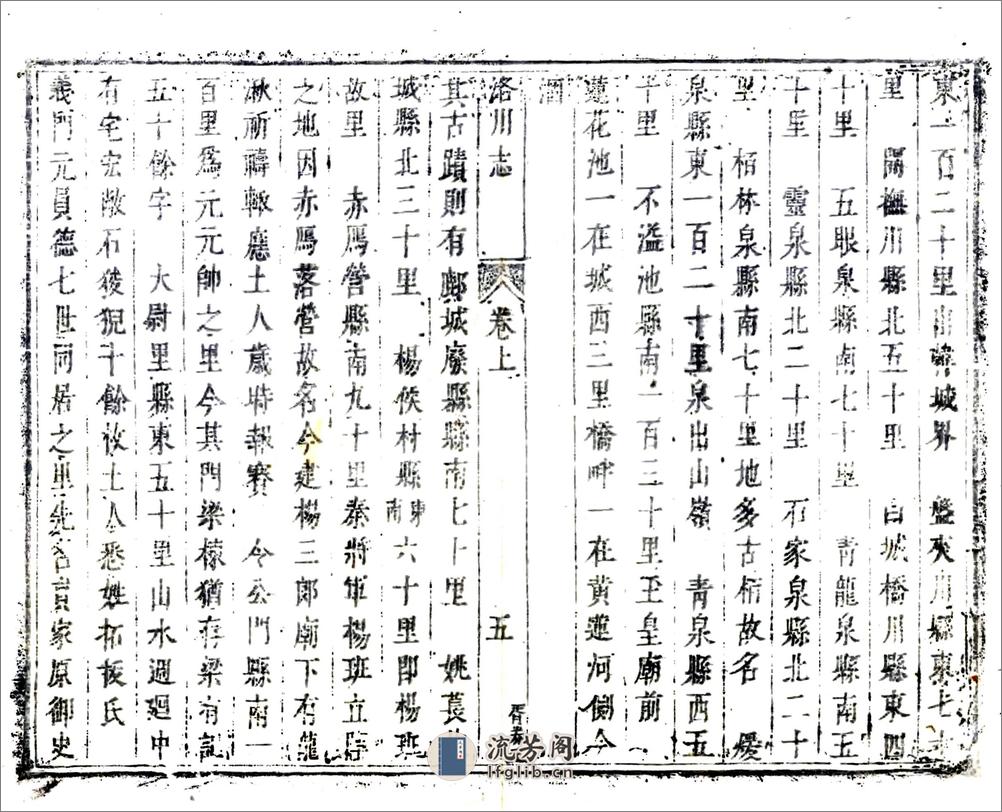 東一百二十里出韓城界　盤夾川縣東七十
里　開撫川縣北五十里　白城橋川縣東四
十里　五眼泉縣南七十里　青龍泉縣南五
十里　靈泉縣北二十里　石家泉縣北二十
里　栢林泉縣南七十里地多古栢故名　煖
泉縣東一百二十里泉出山嶺　青泉縣西五
十里　不溢池縣南一百三十里至皇廟前
蓮花池一在城西三里橋畔一在黃蓮河側今
涸
洛川志　卷上　五
其古蹟則有鄜城廢縣縣南七十里　姚萇
城縣北三十里　楊侯村縣東南六十里卽楊班
故里　赤鴈營縣南九十里秦將軍楊班立
之地因赤鴈落營故名今建楊三郎廟下有龍
湫祈禱輒應土人歲時報賽　令公門縣南一
百里爲元元帥之里今其門梁檬猶存梁有記
五十餘字　大尉里縣東五十里山水週廻中
有宅宏敞石狻猊十餘故土人悉姓拓拔氏
義門元員德七世同居之里先名員家原御史
流芳阁
lfglib.cn